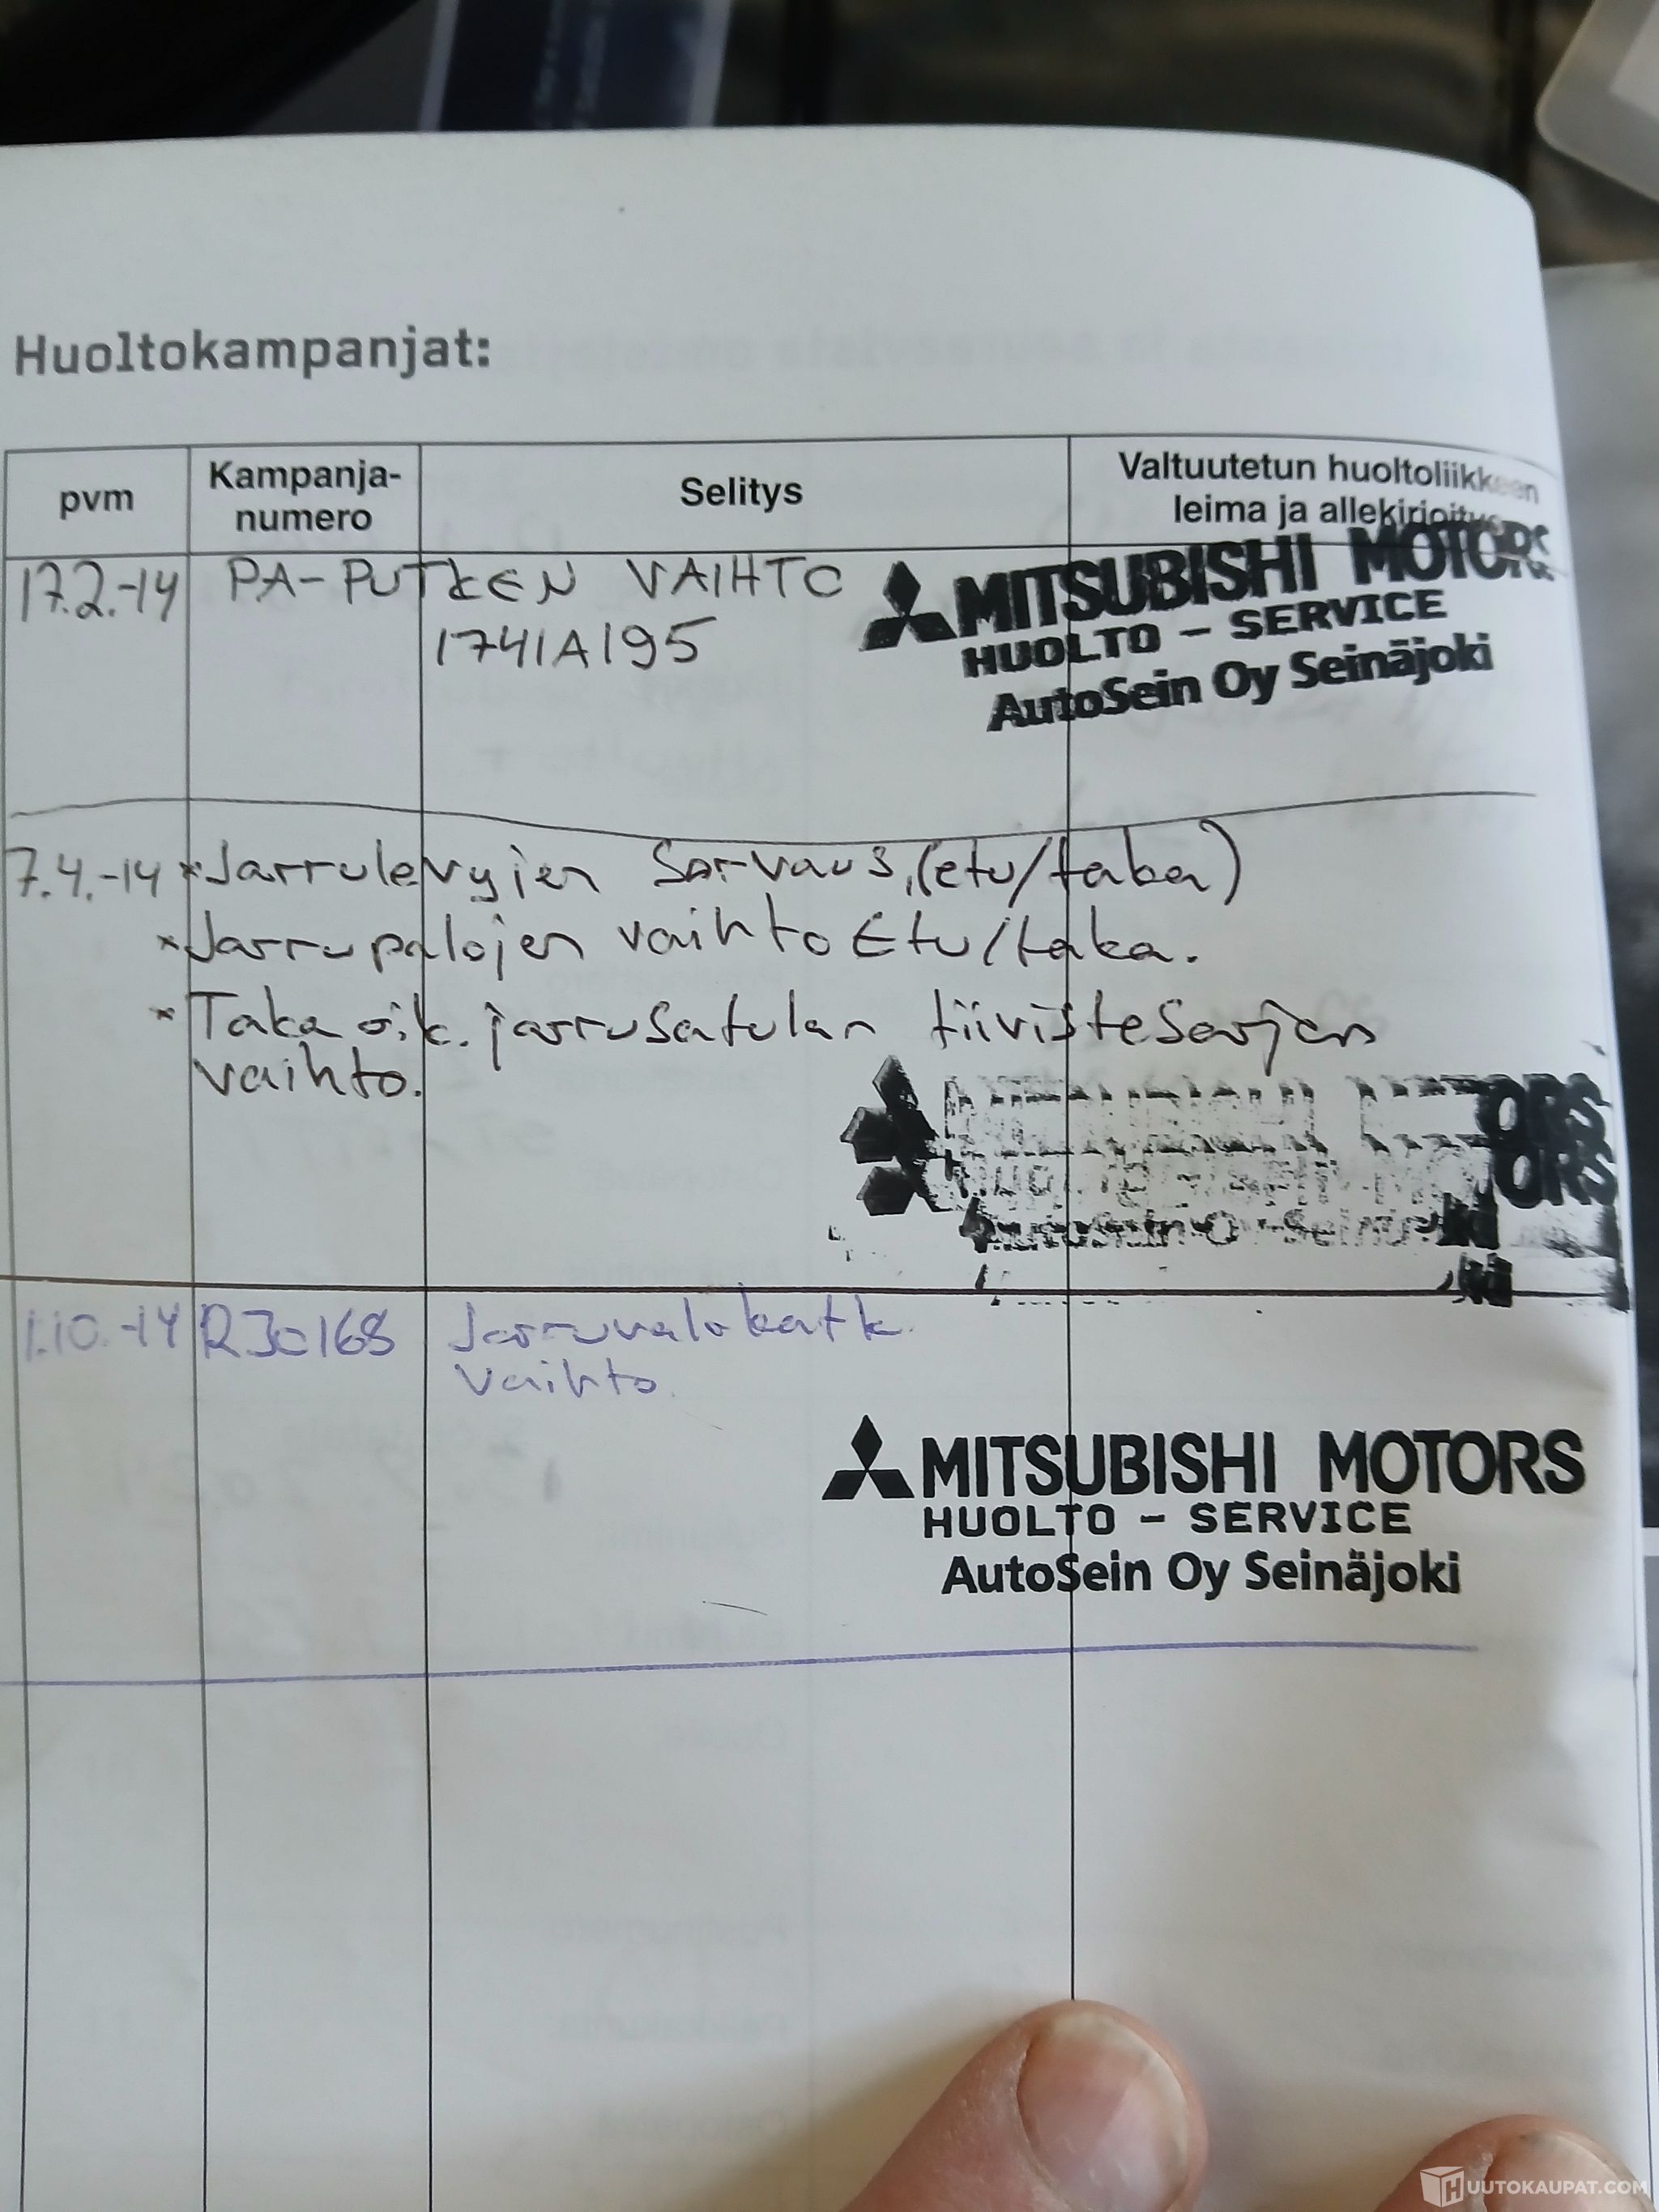 Huoltokampanjat:
pvm
Kampanja-
numero
Selitys
Valtuutetun huoltoliikkeen
leima ja allekirjoitus
17.2.-14 PA-PUTKEN VAIHTO
1741A195
MITSUBISHI MOTORS
HUOLTO - SERVICE
AutoSein Oy Seinäjoki
7.4.-14 *Jarrulevyjen Sorvaus,(etu/taka)
*Jarrupalojen vaihto Etu/taka.
*Taka oik. jarrusatulan tiivistesarjan
vaihto.
ORS
ORS
1.10.-14 R30168 Jarruvalokatk.
vaihto.
MITSUBISHI MOTORS
HUOLTO - SERVICE
AutoSein Oy Seinäjoki
HUUTOKAUPAT.COM